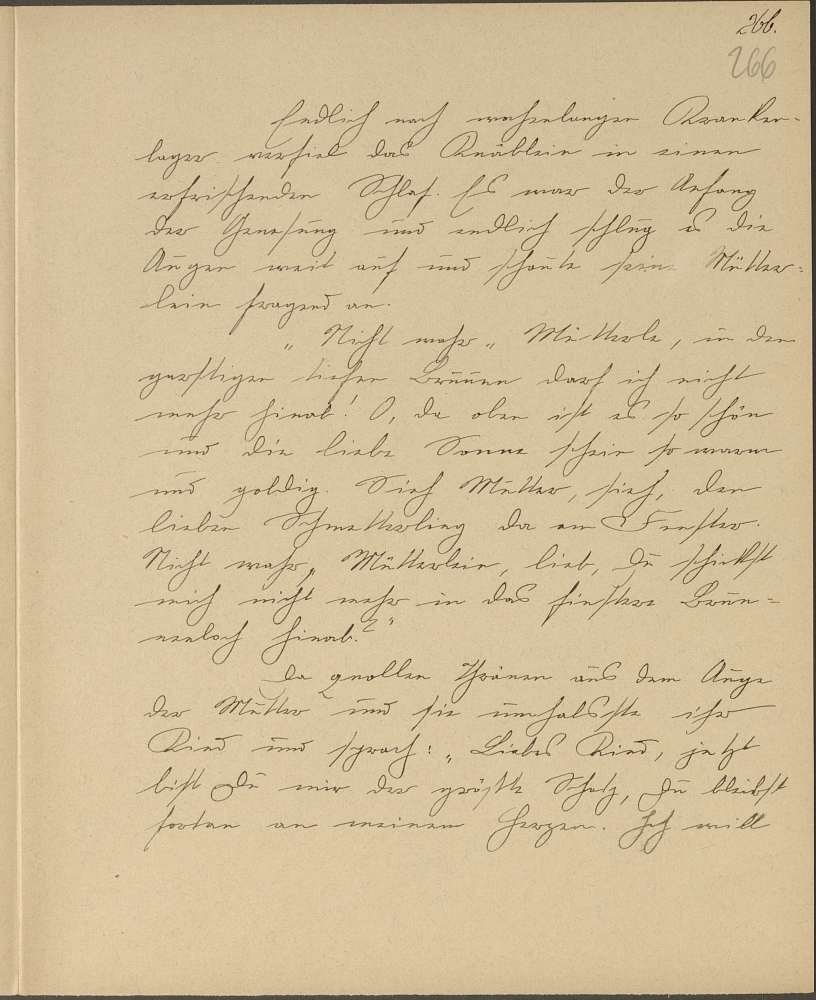 266.
266
Endlich nach wochenlangen Kranken-
lager verfiel das Knäblein in einen
erfrischenden Schlaf. Es war der Anfang
der Genesung und endlich schlug es die
Augen weit auf und schaute seine Mütter-
lein fragend an.
„Nicht wahr„ Mutterle, in den
garstigen tiefen Brunnen darf ich nicht
mehr hinab! O, da oben ist es so schön
und die liebe Sonne schein so warm
und goldig. Sieh Mutter, sieh, den
lieben Schmetterling da am Fenster.
Nicht wahr, Mütterlein, lieb, Du schickst
mich nicht mehr in das finstere Brun-
nenloch hinab?"
Da quollen Thränen aus dem Auge
der Mutter und sie umhalsste ihr
Kind und sprach: „Liebes Kind, jetzt
bist Du mir der größte Schatz, Du bleibst
fortan an meinem Herzen. Ich will